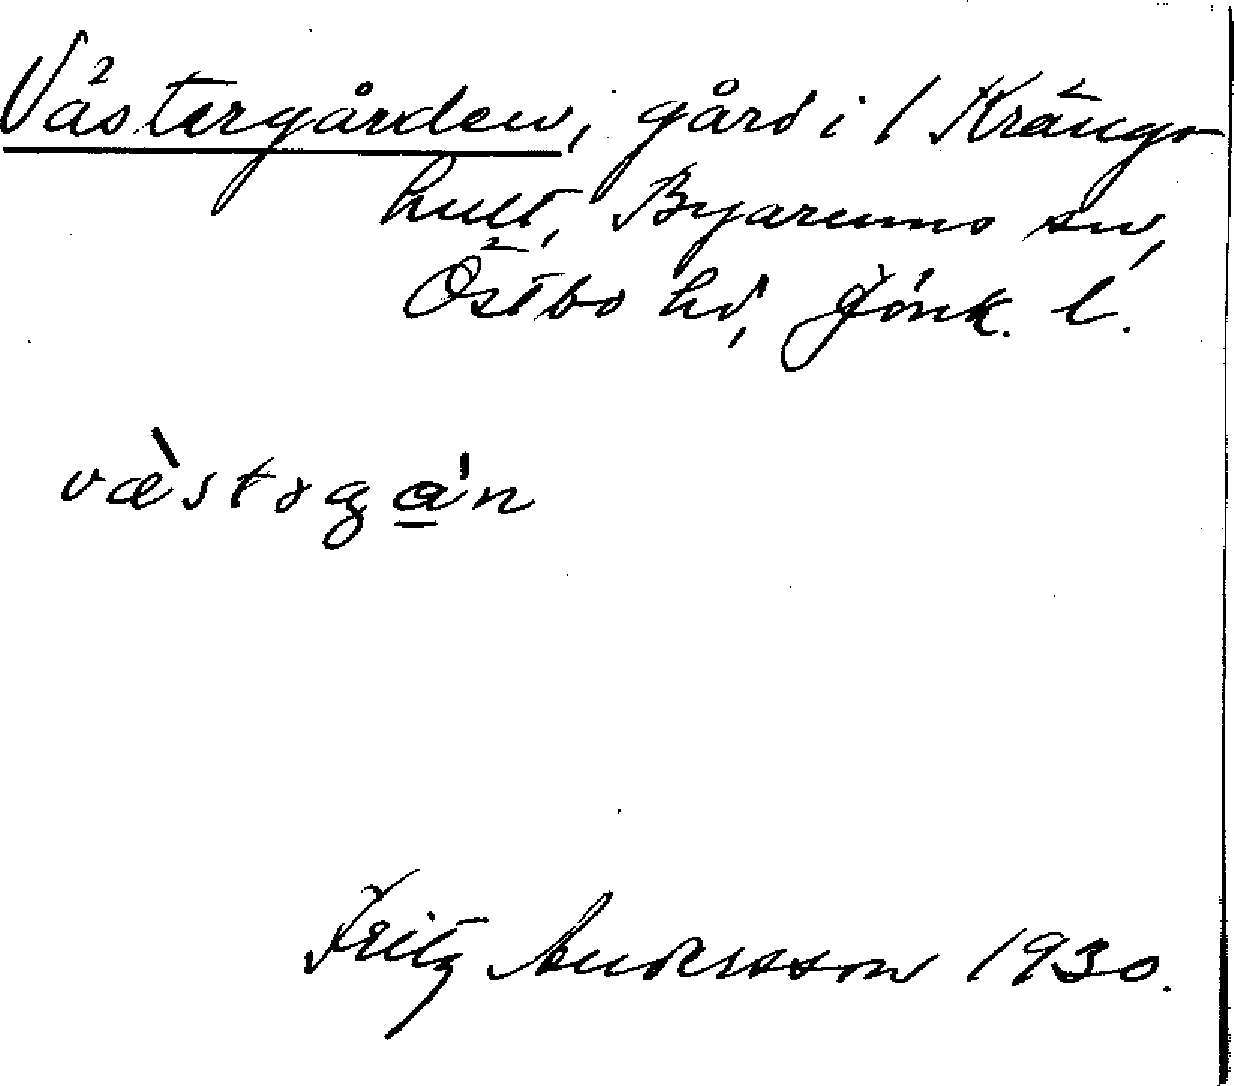 Västergården, gård i 1 Krängs-
hult, Byarums sn,
Östbo hd, Jönk. l.
væ̀stəga̲'n
Fritz Andersson 1930.